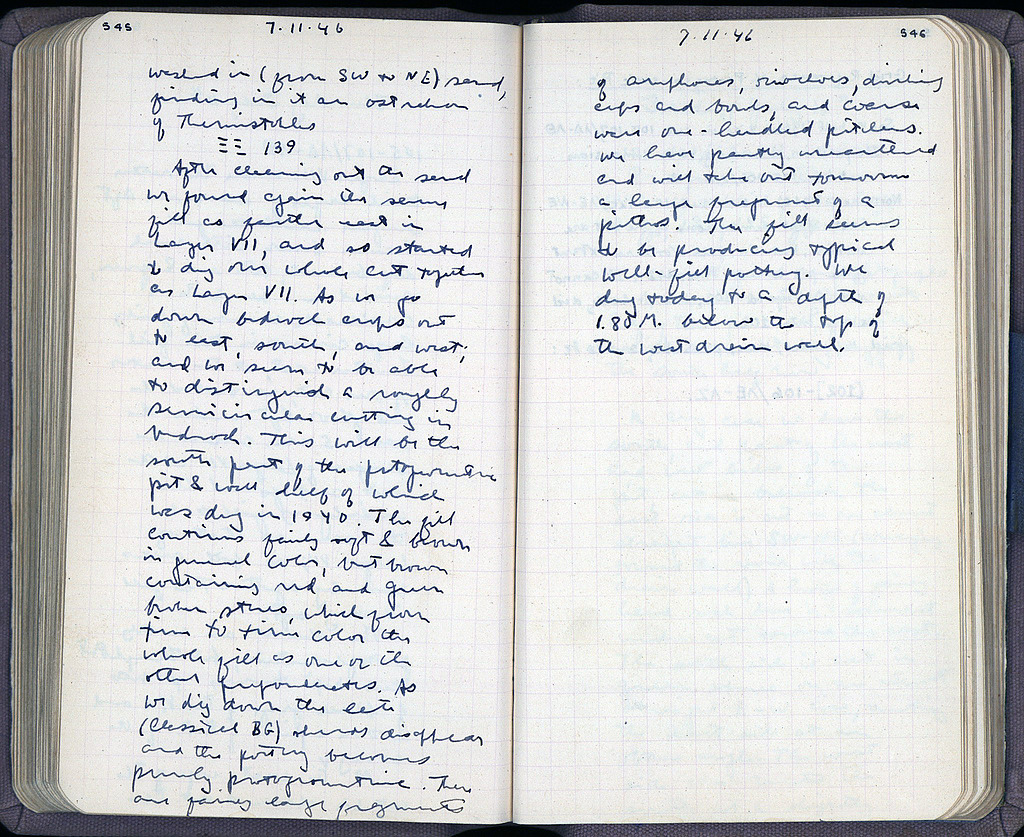 545
7·11·46
washed in (from SW to NE) sand,
finding in it an ostrakon
of Themistokles
ΞΞ 139
After cleaning out the sand
we found again the same
fill as farther east in
Layer VII, and so started
to dig our whole cut together
as Layer VII. As we go
down bedrock crops out
to east, south, and west,
and we seem to be able
to distinguish a roughly
semicircular cutting in
bedrock. This will be the
south part of the protogeometric
pit & well half of which
was dug in 1940. The fill
continues fairly soft & brown
in general color, but brown
containing red and green
broken stones, which from
time to time color the
whole fill as one or the
other preponderates. As
we dig down the late
(Classical BG) sherds disappear
and the pottery becomes
purely protogeometric. There
are fairly large fragments
7·11·46
546
of amphoras, oinochoes, drinking
cups and bowls, and coarse
ware one-handled pitchers.
We have partly uncovered
and will take out tomorrow
a large fragment of a
pithos. The fill seems
to be producing typical
well-fill pottery. We
dug today to a depth of
1.80 M. below the top of
the west drain wall.